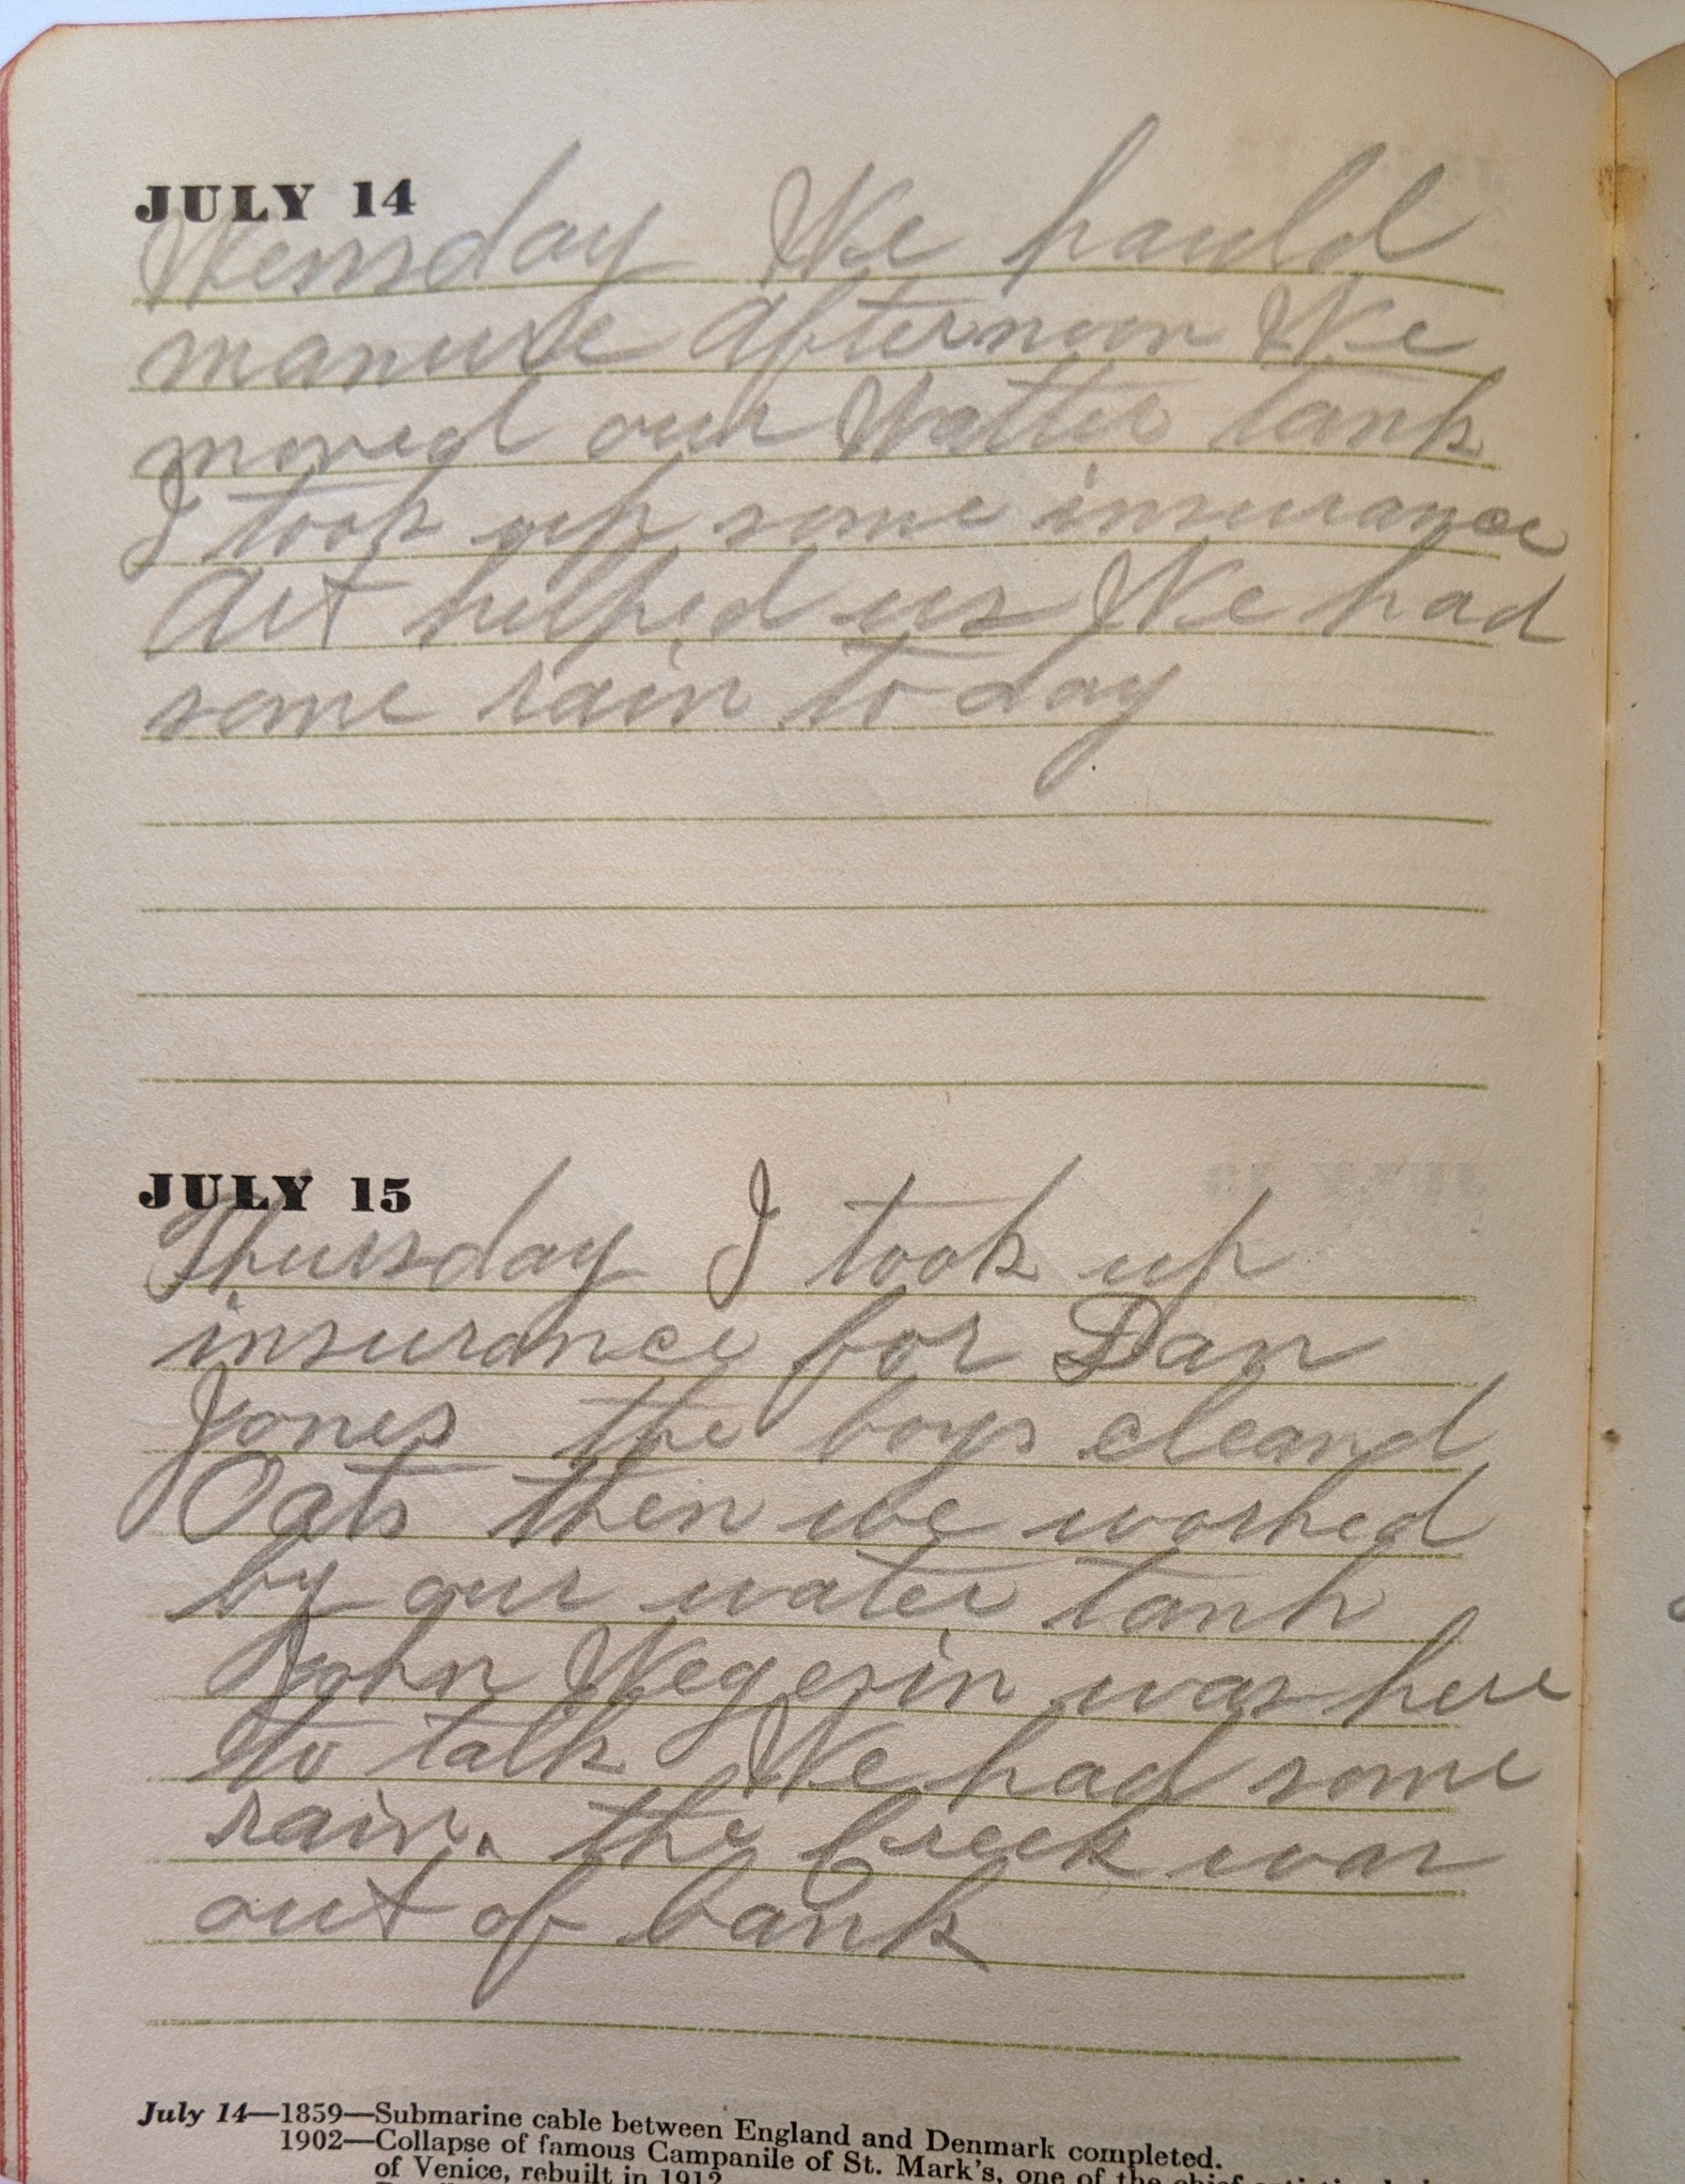 JULY 14
Wensday We hauld
manure Afternoon We
moved our Watter tank
I took up some insurance
Art helped us We had
some rain to day
JULY 15
Thursday I took up
insurance for Dan
Jones the boys cleand
Oats then we worked
by our water tank
John Wegerin was here
to talk We had some
rain. the creek was
out of bank
July 14—1859—Submarine cable between England and Denmark completed.
1902—Collapse of famous Campanile of St. Mark's, one of the chief
of Venice, rebuilt in 1912